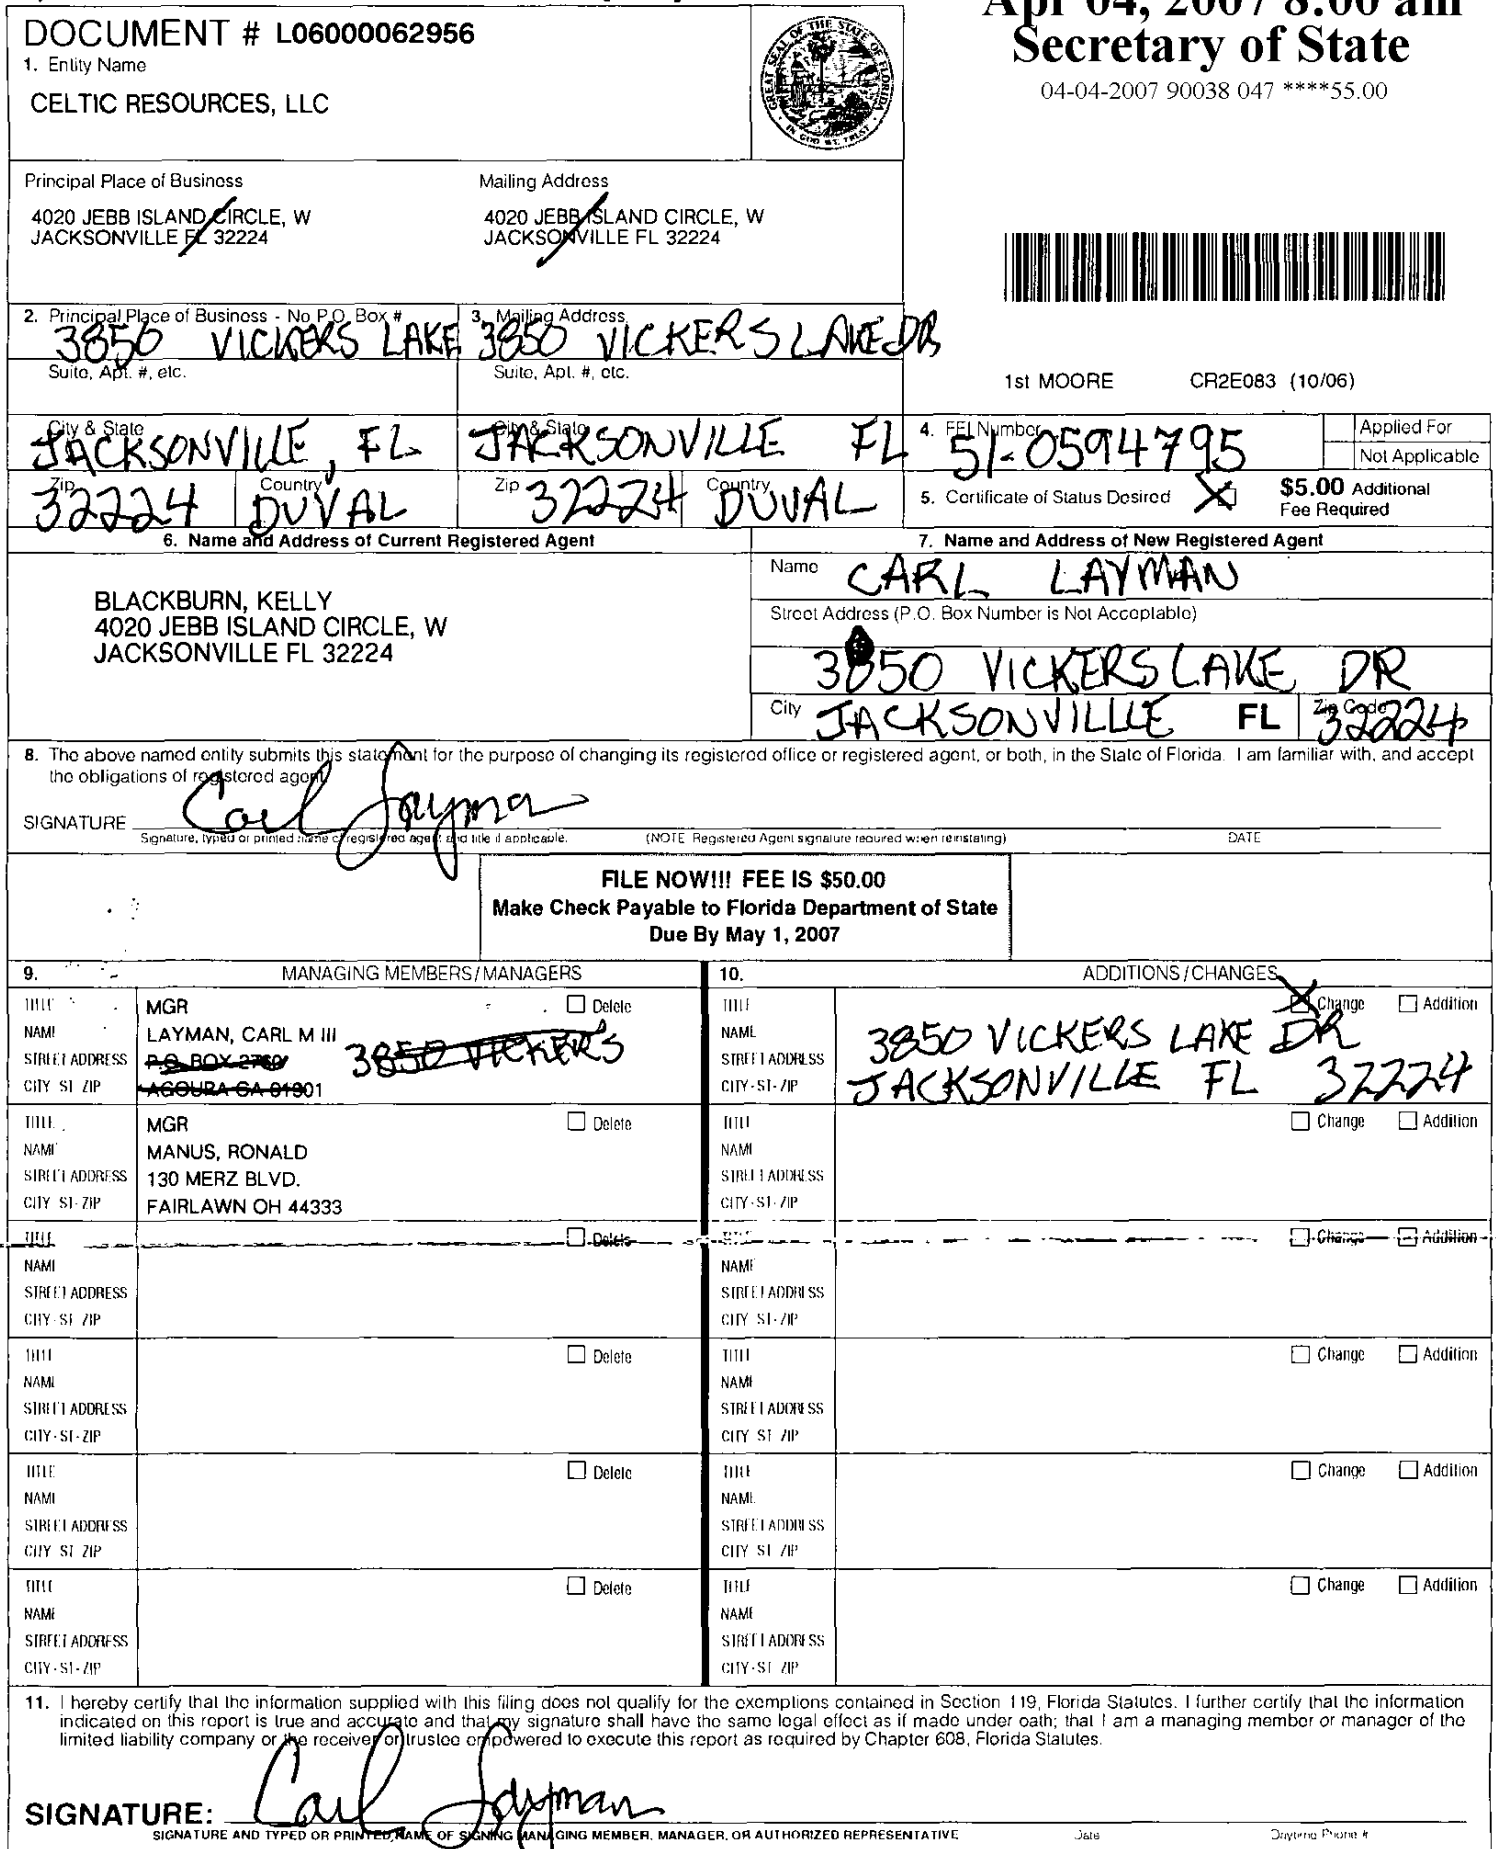 Apr 04, 2007 8:00 am
Secretary of State
04-04-2007 90038 047 ****55.00
DOCUMENT # L06000062956
1. Entity Name
CELTIC RESOURCES, LLC
GREAT SEAL OF THE STATE OF FLORIDA
IN GOD WE TRUST
Principal Place of Business
4020 JEBB ISLAND CIRCLE, W
JACKSONVILLE FL 32224
Mailing Address
4020 JEBB ISLAND CIRCLE, W
JACKSONVILLE FL 32224
2. Principal Place of Business - No P.O. Box #
3850 VICKERS LAKE
3. Mailing Address
3850 VICKERS LAKE DR
Suite, Apt. #, etc.
Suite, Apt. #, etc.
1st MOORE CR2E083 (10/06)
City & State
JACKSONVILLE, FL
City & State
JACKSONVILLE FL
4. FEI Number
51-0594795
Applied For
Not Applicable
Zip
32224
Country
DUVAL
Zip
32224
Country
DUVAL
5. Certificate of Status Desired X
$5.00 Additional
Fee Required
6. Name and Address of Current Registered Agent
BLACKBURN, KELLY
4020 JEBB ISLAND CIRCLE, W
JACKSONVILLE FL 32224
7. Name and Address of New Registered Agent
Name
CARL LAYMAN
Street Address (P.O. Box Number is Not Acceptable)
3850 VICKERS LAKE DR
City
JACKSONVILLLE FL
Zip Code
32224
8. The above named entity submits this statement for the purpose of changing its registered office or registered agent, or both, in the State of Florida. I am familiar with, and accept
the obligations of registered agent.
SIGNATURE Carl Layman
Signature, typed or printed name of registered agent and title if applicable. (NOTE Registered Agent signature required when reinstating) DATE
FILE NOW!!! FEE IS $50.00
Make Check Payable to Florida Department of State
Due By May 1, 2007
9. MANAGING MEMBERS/MANAGERS
TITLE MGR Delete
NAME LAYMAN, CARL M III
STREET ADDRESS P.O. BOX 2760 3850 VICKERS
CITY ST ZIP AGOURA CA 91301
TITLE MGR Delete
NAME MANUS, RONALD
STREET ADDRESS 130 MERZ BLVD.
CITY ST-ZIP FAIRLAWN OH 44333
TITLE Delete
NAME
STREET ADDRESS
CITY-ST ZIP
TITLE Delete
NAME
STREET ADDRESS
CITY-ST-ZIP
TITLE Delete
NAME
STREET ADDRESS
CITY ST ZIP
TITLE Delete
NAME
STREET ADDRESS
CITY-ST-ZIP
10. ADDITIONS/CHANGES
TITLE X Change Addition
NAME 3850 VICKERS LAKE DR
STREET ADDRESS
CITY-ST-ZIP JACKSONVILLE FL 32224
TITLE Change Addition
NAME
STREET ADDRESS
CITY-ST-ZIP
TITLE Change Addition
NAME
STREET ADDRESS
CITY ST-ZIP
TITLE Change Addition
NAME
STREET ADDRESS
CITY ST ZIP
TITLE Change Addition
NAME
STREET ADDRESS
CITY ST ZIP
TITLE Change Addition
NAME
STREET ADDRESS
CITY-ST ZIP
11. I hereby certify that the information supplied with this filing does not qualify for the exemptions contained in Section 119, Florida Statutes. I further certify that the information
indicated on this report is true and accurate and that my signature shall have the same legal effect as if made under oath; that I am a managing member or manager of the
limited liability company or the receiver or trustee empowered to execute this report as required by Chapter 608, Florida Statutes.
SIGNATURE: Carl Layman
SIGNATURE AND TYPED OR PRINTED NAME OF SIGNING MANAGING MEMBER, MANAGER, OR AUTHORIZED REPRESENTATIVE Date Daytime Phone #